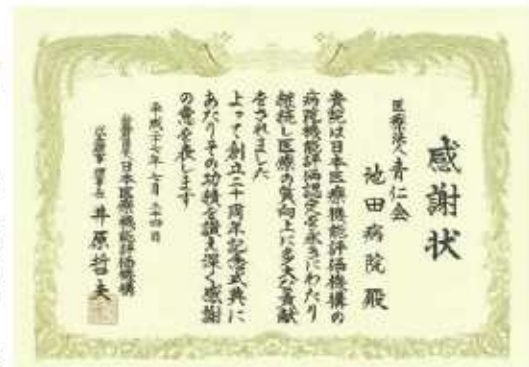 感謝状
医療法人青仁会
池田病院殿
貴院は日本医療機能評価機構の
病院機能評価認定を永きにわたり
継続し医療の質向上に多大な貢献
をされました
よって創立二十周年記念式典に
あたりその功績を讃え深く感謝
の意を表します
平成二十七年七月二十四日
公益財団法人日本医療機能評価機構
代表理事 理事長 井原哲夫